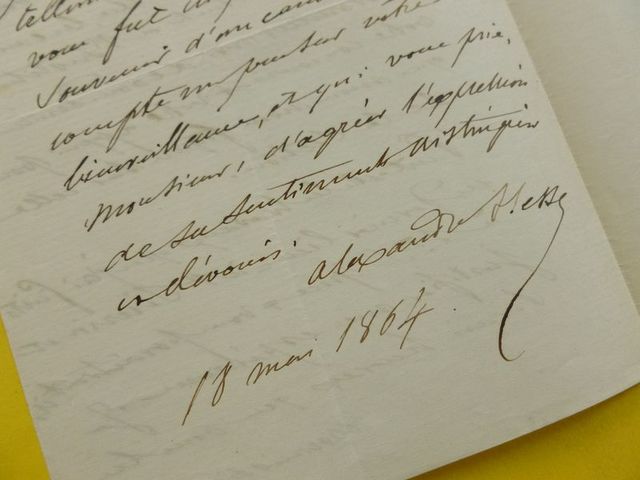 vous fut
souvenir d'un
compte un peu sur votre
bienveillance, et qui vous prie,
Monsieur, d'agréer l'expression
de ses sentiments distingués
et dévoués.
Alexandre Hesse
18 mai 1864.